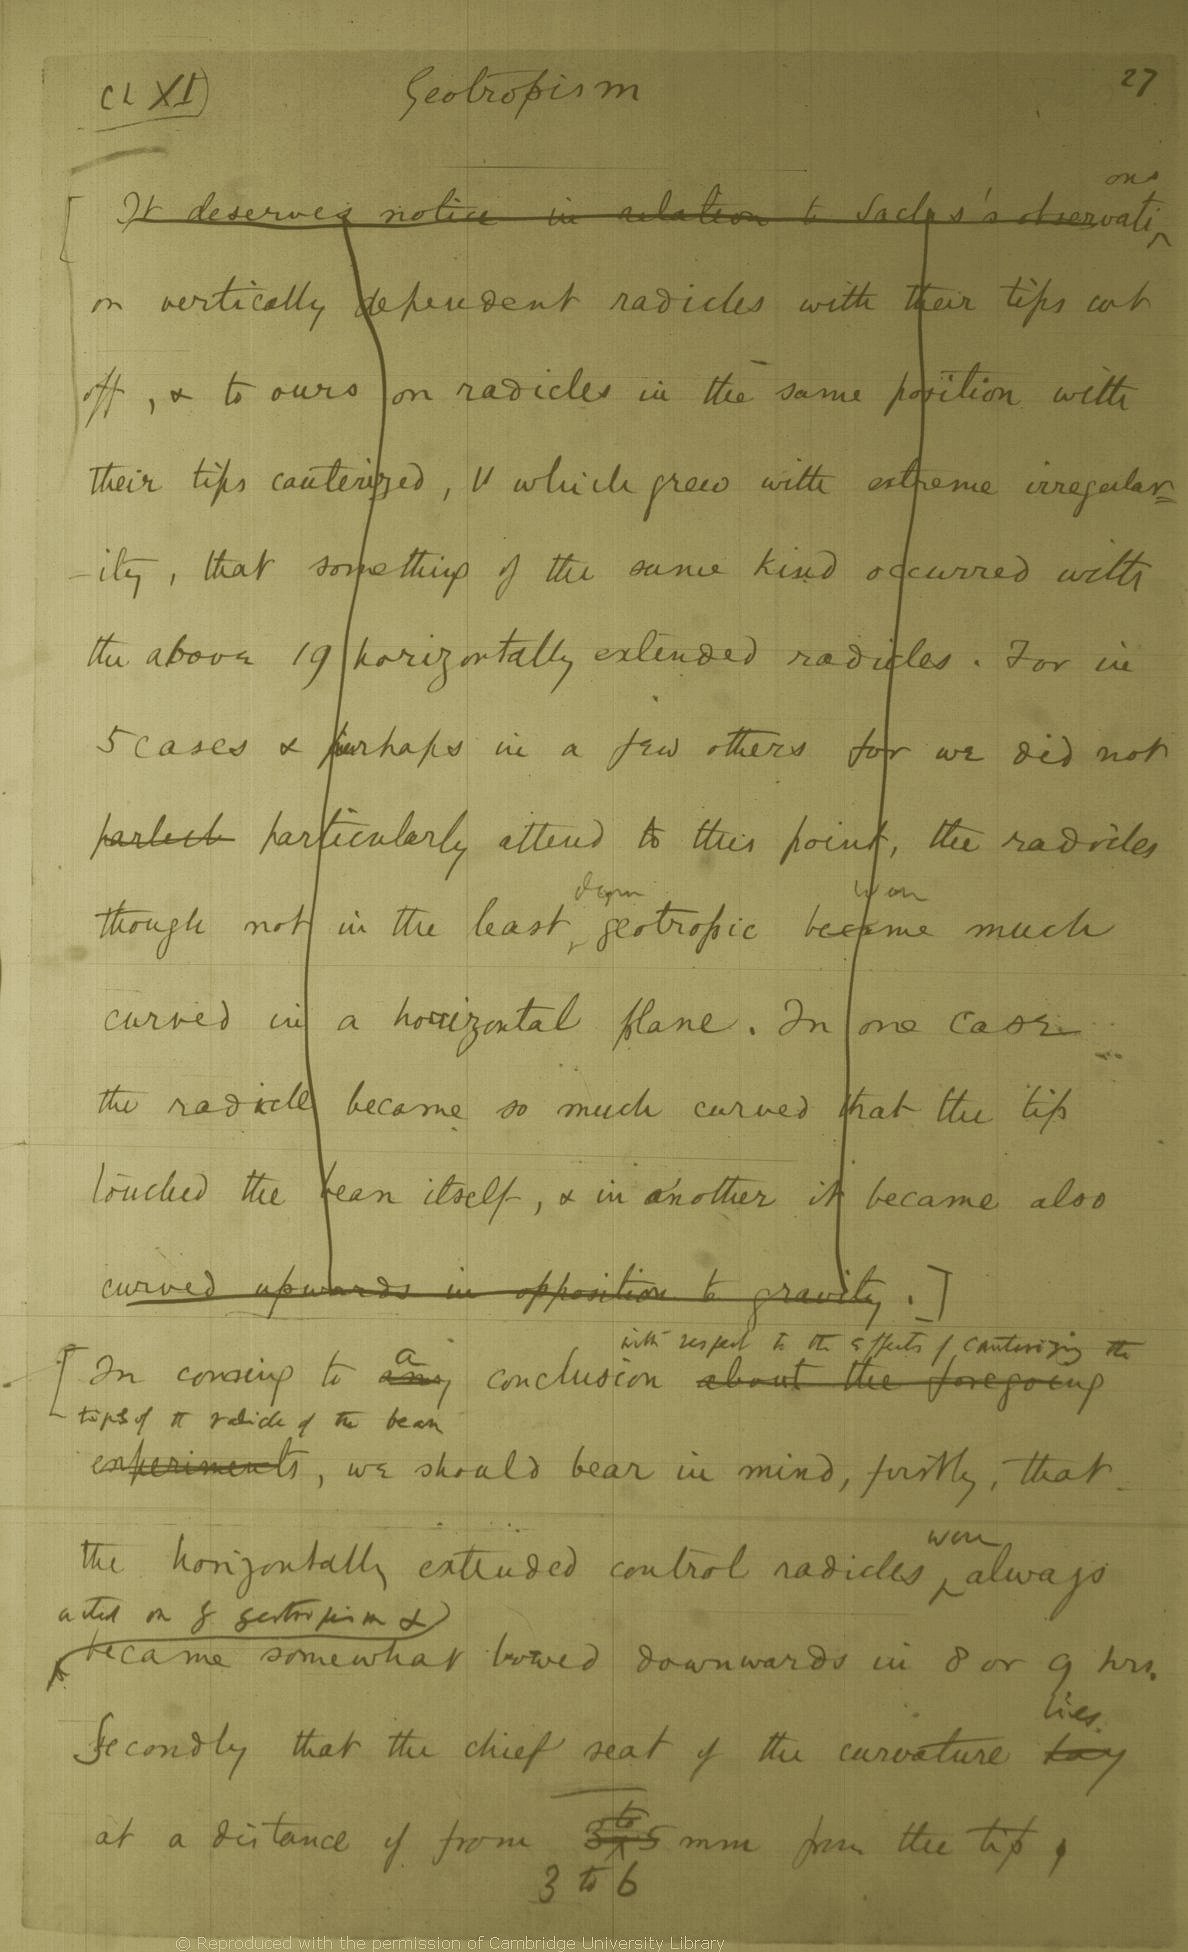 Ch XI) Geotropism 27
ons
It deserves notice in relation to Sachs's observati
on vertically dependent radicles with their tips cut
off, & to ours on radicles in the same position with
their tips cauterized, & which grew with extreme irregular-
-ity, that something of the same kind occurred with
the above 19 horizontally extended radicles. For in
5 cases & perhaps in a few others for we did not
particularly attend to this point, the radicles
down were
though not in the least geotropic became much
curved in a horizontal plane. In one case
the radicle became so much curved that the tip
touched the bean itself, & in another it became also
curved upwards in opposition to gravity.]
with respect to the effects of cauterizing the
[In coming to a any conclusion about the foregoing
tips of the radicle of the bean
experiments, we should bear in mind, firstly, that
were
the horizontally extended control radicles always
acted on by geotropism &
became somewhat bowed downwards in 8 or 9 hrs.
lies
Secondly that the chief seat of the curvature lay
to
at a distance of from 3 5 mm from the tip,
3 to 6
© Reproduced with the permission of Cambridge University Library